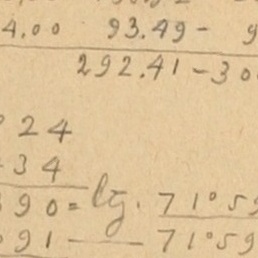 4,00 93.49 - 9
292.41 - 30
° 24
- 34
90 = log. 71° 59
91 — 71° 59